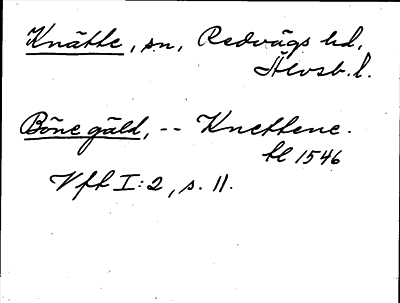 Knätte, sn, Redvägs hd,
Älvsb. l.
Böne gäld, -- Knettene.
hl 1546
Vfh I:2, s. 11.